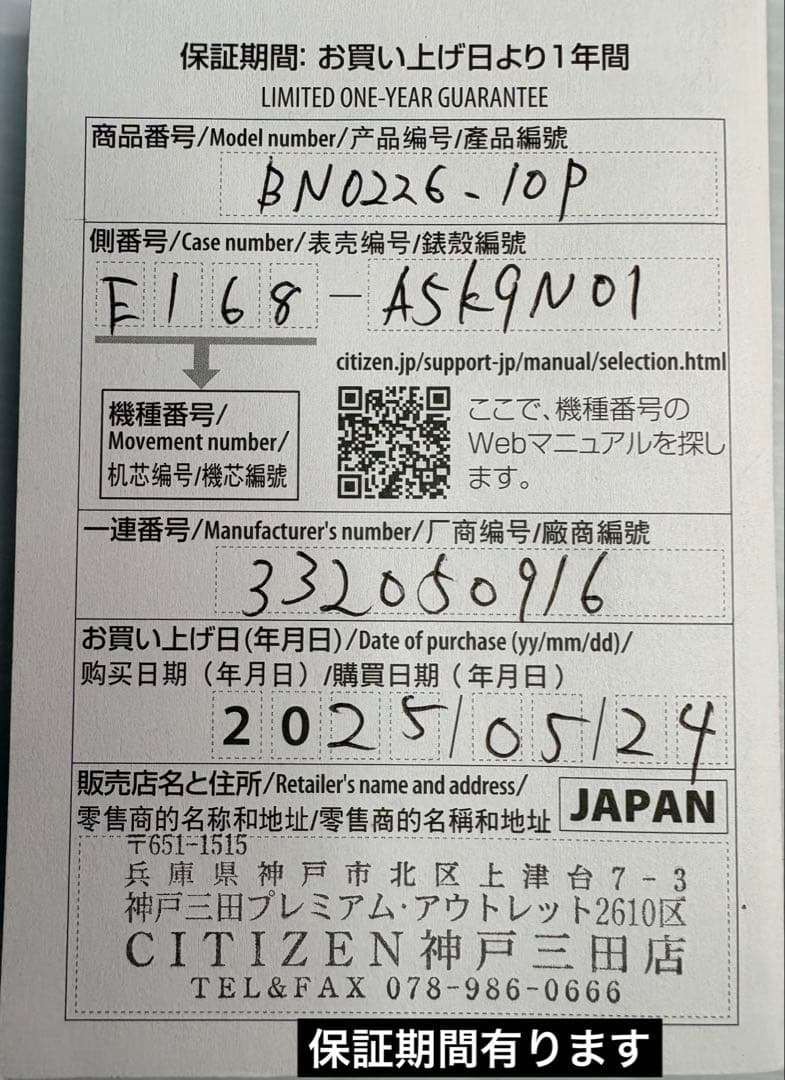 保証期間: お買い上げ日より1年間
LIMITED ONE-YEAR GUARANTEE
商品番号/Model number/产品编号/產品編號
BN0226-10P
側番号/Case number/表壳编号/錶殼編號
E168-A5K9N01
citizen.jp/support-jp/manual/selection.html
機種番号/
Movement number/
机芯编号/機芯編號
ここで、機種番号の
Webマニュアルを探し
ます。
一連番号/Manufacturer's number/厂商编号/廠商編號
332050916
お買い上げ日(年月日)/Date of purchase (yy/mm/dd)/
购买日期（年月日）/購買日期（年月日）
2025/05/24
販売店名と住所/Retailer's name and address/
零售商的名称和地址/零售商的名稱和地址
JAPAN
〒651-1515
兵庫県神戸市北区上津台7-3
神戸三田プレミアム・アウトレット2610区
CITIZEN神戸三田店
TEL&FAX 078-986-0666
保証期間有ります